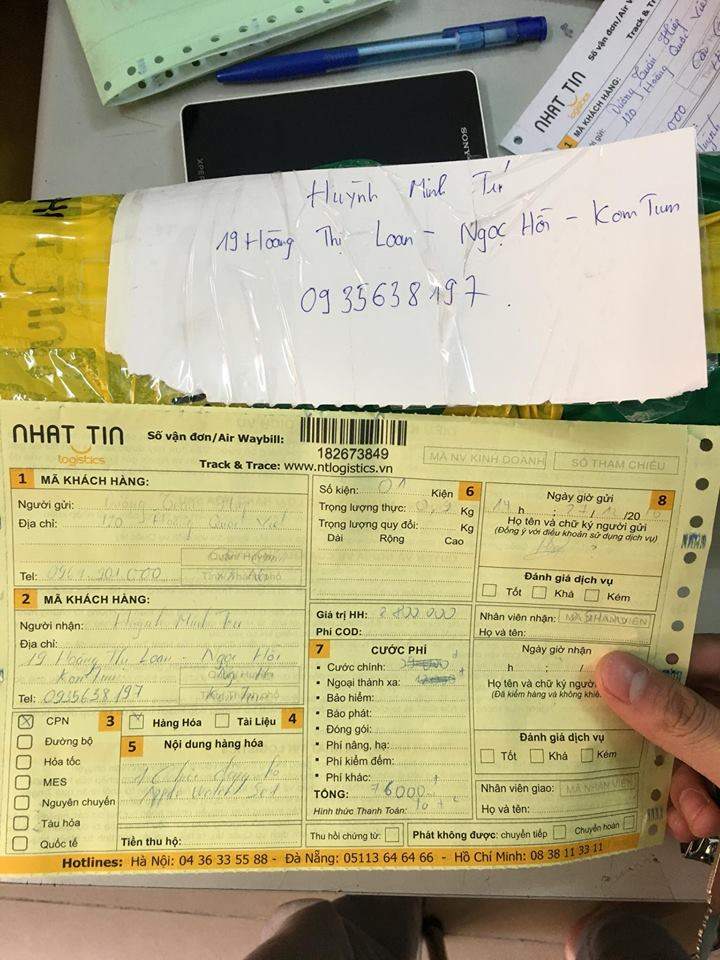 NHAT TIN
logistics
Số vận đơn/Air W
Track & Tra
1 MÃ KHÁCH HÀNG:
120
SONY
XPER
Huỳnh Minh Tú
19 Hoàng Thị Loan - Ngọc Hồi - Kom Tum
0935638197.
NHAT TIN
logistics
Số vận đơn/Air Waybill:
182673849
Track & Trace: www.ntlogistics.vn
MÃ NV KINH DOANH
SỐ THAM CHIẾU
1 MÃ KHÁCH HÀNG:
Người gửi:
Địa chỉ: 120 Hoàng Quốc Việt
Quận/Huyện
Tỉnh/Thành phố
Tel:
2 MÃ KHÁCH HÀNG:
Người nhận: Huỳnh Minh Tú
Địa chỉ:
19 Hoàng Thị Loan - Ngọc Hồi
Kom Tum
Tel: 0935638197
CPN 3
Đường bộ
Hỏa tốc
MES
Nguyên chuyến
Tàu hỏa
Quốc tế
Hàng Hóa Tài Liệu 4
5 Nội dung hàng hóa
Apple Watch
Tiền thu hộ:
Số kiện: 01 Kiện 6
Trọng lượng thực: Kg
Trọng lượng quy đổi: Kg
Dài Rộng Cao
Giá trị HH: 2800.000
Phí COD:
7 CƯỚC PHÍ
Cước chính:
Ngoại thành xa:
Bảo hiểm:
Bảo phát:
Đóng gói:
Phí nâng, hạ:
Phí kiểm đếm:
Phí khác:
TỔNG: 76000
Hình thức Thanh Toán:
Thu hồi chứng từ:
Ngày giờ gửi 8
14 h : 27 / /20
Họ tên và chữ ký người gửi
(Đồng ý với điều khoản sử dụng dịch vụ)
Đánh giá dịch vụ
Tốt Khá Kém
Nhân viên nhận: MÃ NHÂN VIÊN
Họ và tên:
Ngày giờ nhận
h :
Họ tên và chữ ký người
(Đã kiểm hàng và không khiế
Đánh giá dịch vụ
Tốt Khá Kém
Nhân viên giao: MÃ NHÂN VIÊN
Họ và tên:
Phát không được: chuyển tiếp Chuyển hoàn
Hotlines: Hà Nội: 04 36 33 55 88 - Đà Nẵng: 05113 64 64 66 - Hồ Chí Minh: 08 38 11 33 11